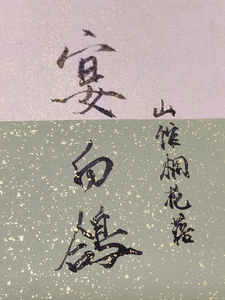 宴白鴿
山館桐花落